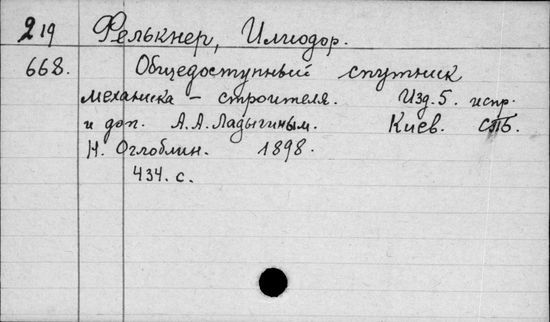 219 Фелькнер, Илиодор.
668. Общедоступный спутник
механика - строителя. Изд. 5. испр.
и доп. А.А. Ладыгиным. Киев. СПБ.
Н. Оглоблин. 1898.
434. с.